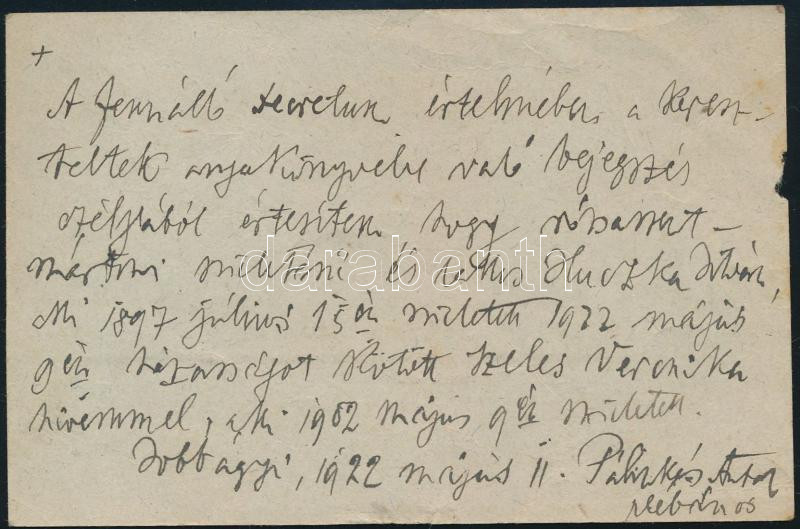 +
A fennálló decretum értelmében a keresz-
teltek anyakönyvébe való bejegyzés
céljából értesítem hogy rózsaszent-
mártoni születésű és Huczka István,
aki 1897 július 15én született 1922 május
9én házasságot kötött Szeles Veronika
hívemmel, aki 1902 május 9én született.
Jobbágyi, 1922 május 11. Antal
plébános
darabanth